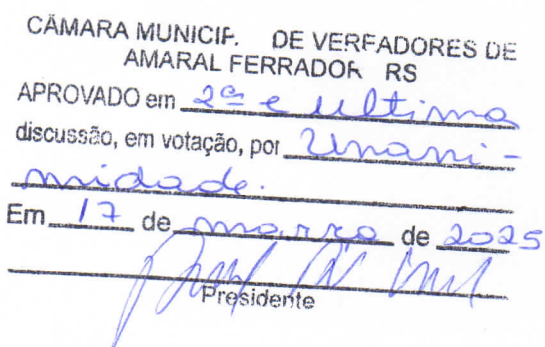 CÂMARA MUNICIP. DE VERFADORES DE
AMARAL FERRADOR RS
APROVADO em 2ª e ultima
discussão, em votação, por Unani-
midade.
Em 17 de março de 2025
Presidente